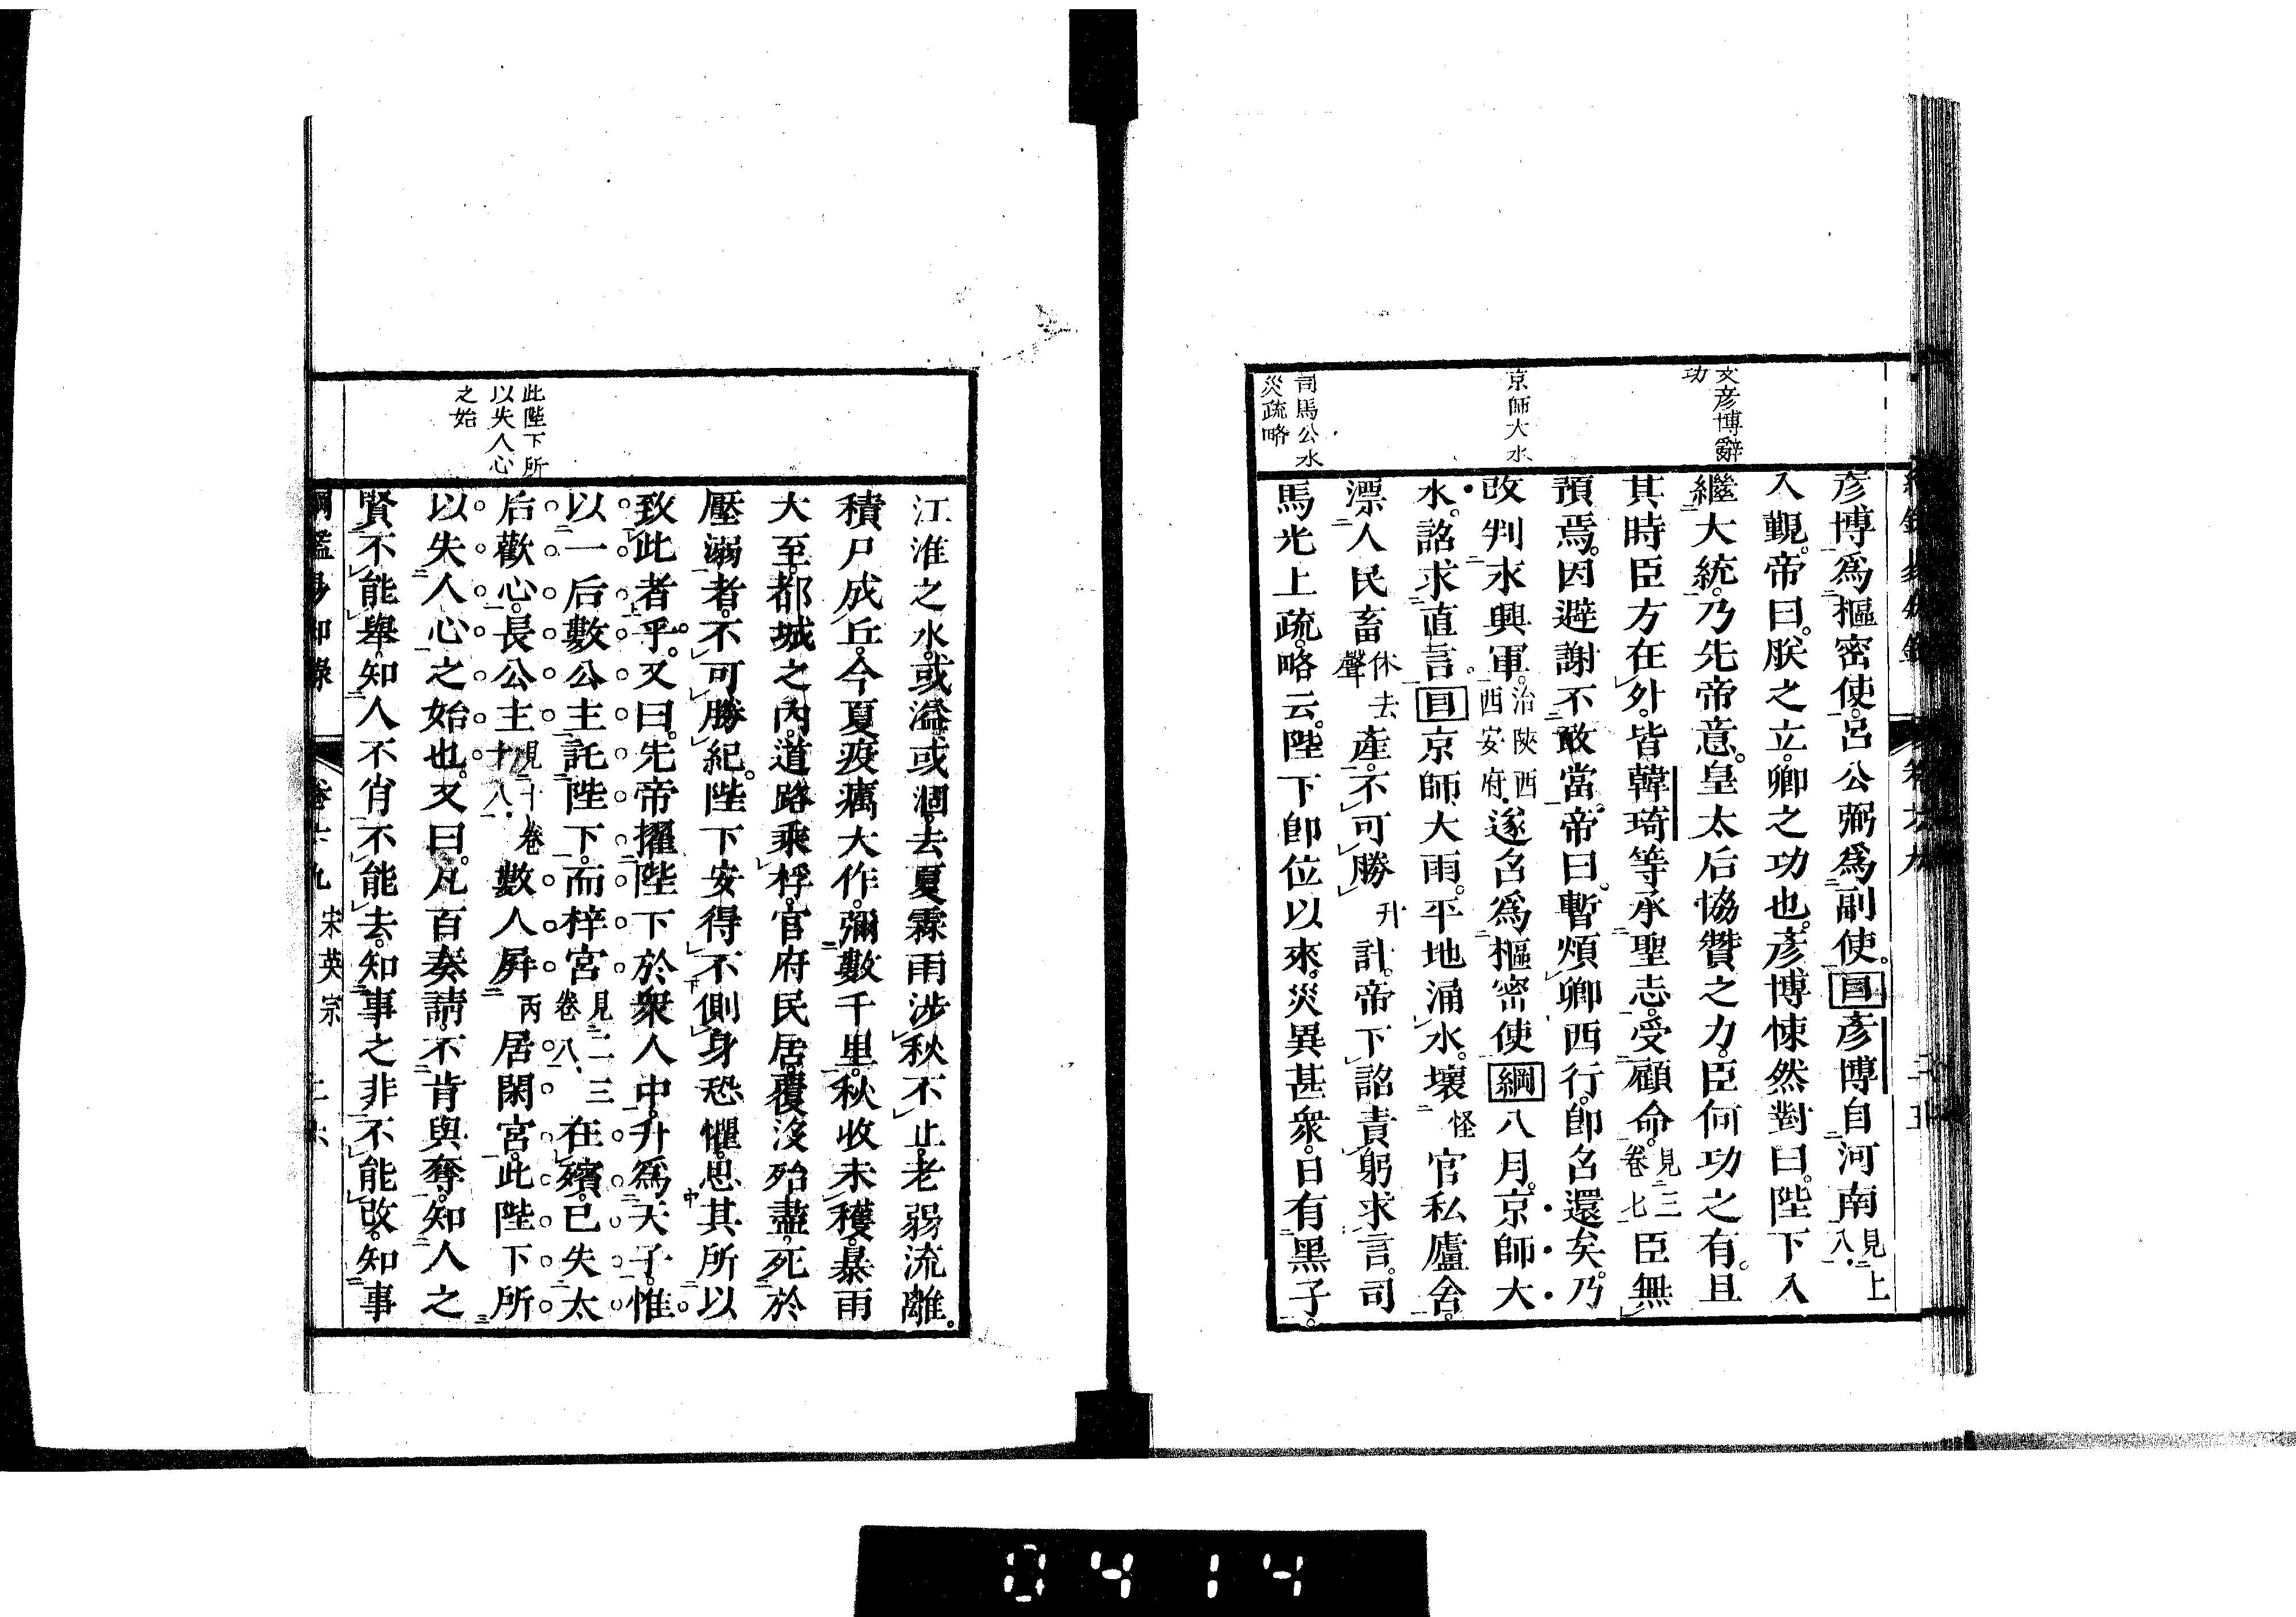 文彥博辭
功
京師大水
司馬公水
災疏略
彥博爲樞密使。呂公弼爲副使。目彥博自河南見上八
入覲。帝曰。朕之立。卿之功也。彥博悚然對曰。陛下入
繼大統。乃先帝意。皇太后恊贊之力。臣何功之有。且
其時臣方在外。皆韓琦等承聖志。受顧命。見三卷七臣無
預焉。因避謝不敢當。帝曰。暫煩卿西行。卽召還矣。乃
改判永興軍。治陝西西安府遂召爲樞密使綱八月。京師大
水。詔求直言目京師大雨。平地涌水。壞怪官私廬舍。
漂人民畜休去聲產。不可勝升計。帝下詔責躬求言。司
馬光上疏。略云。陛下卽位以來。災異甚衆。日有黑子。
此陛下所
以失人心
之始
江淮之水。或溢或涸。去夏霖雨涉秋不止。老弱流離。
積尸成丘。今夏疫癘大作。彌數千里。秋收未穫。暴雨
大至。都城之內。道路乘桴。官府民居。覆沒殆盡。死於
壓溺者。不可勝紀。陛下安得不側身恐懼。思其所以
致此者乎。又曰。先帝擢陛下於衆人中。升爲天子。惟
以一后數公主託陛下。而梓宮見二三卷八在殯。已失太
后歡心。長公主見十卷十八數人屛丙居閑宮。此陛下所
以失人心之始也。又曰。凡百奏請。不肯與奪。知人之
賢不能舉。知人不肖不能去。知事之非不能改。知事
綱鑑易知錄 卷六九 宋英宗
0414